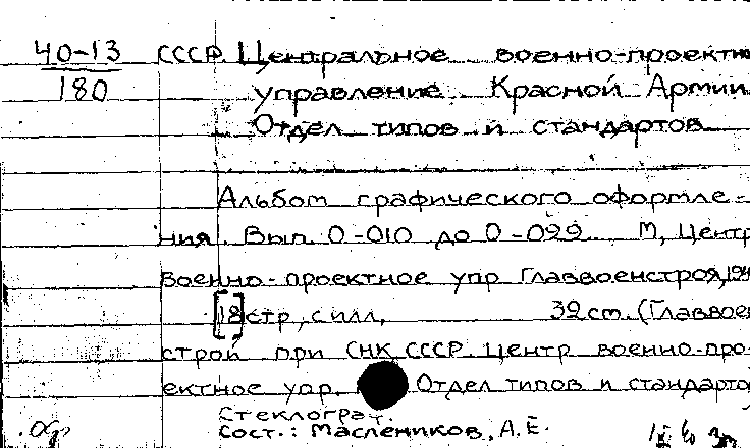 40-13
180
СССР. Центральное военно-проектн
управление Красной Армии.
Отдел типов и стандартов
Альбом графического оформле-
ния. Вып. 0-010 до 0-099 М, Центр
военно-проектное упр Главвоенстроя, 194
[18] стр, с илл, 32 cm. (Главвоен
строй при СНК СССР. Центр военно-про-
ектное упр. Отдел типов и стандарто
Стеклограф.
Сост.: Маслеников, А.Е.